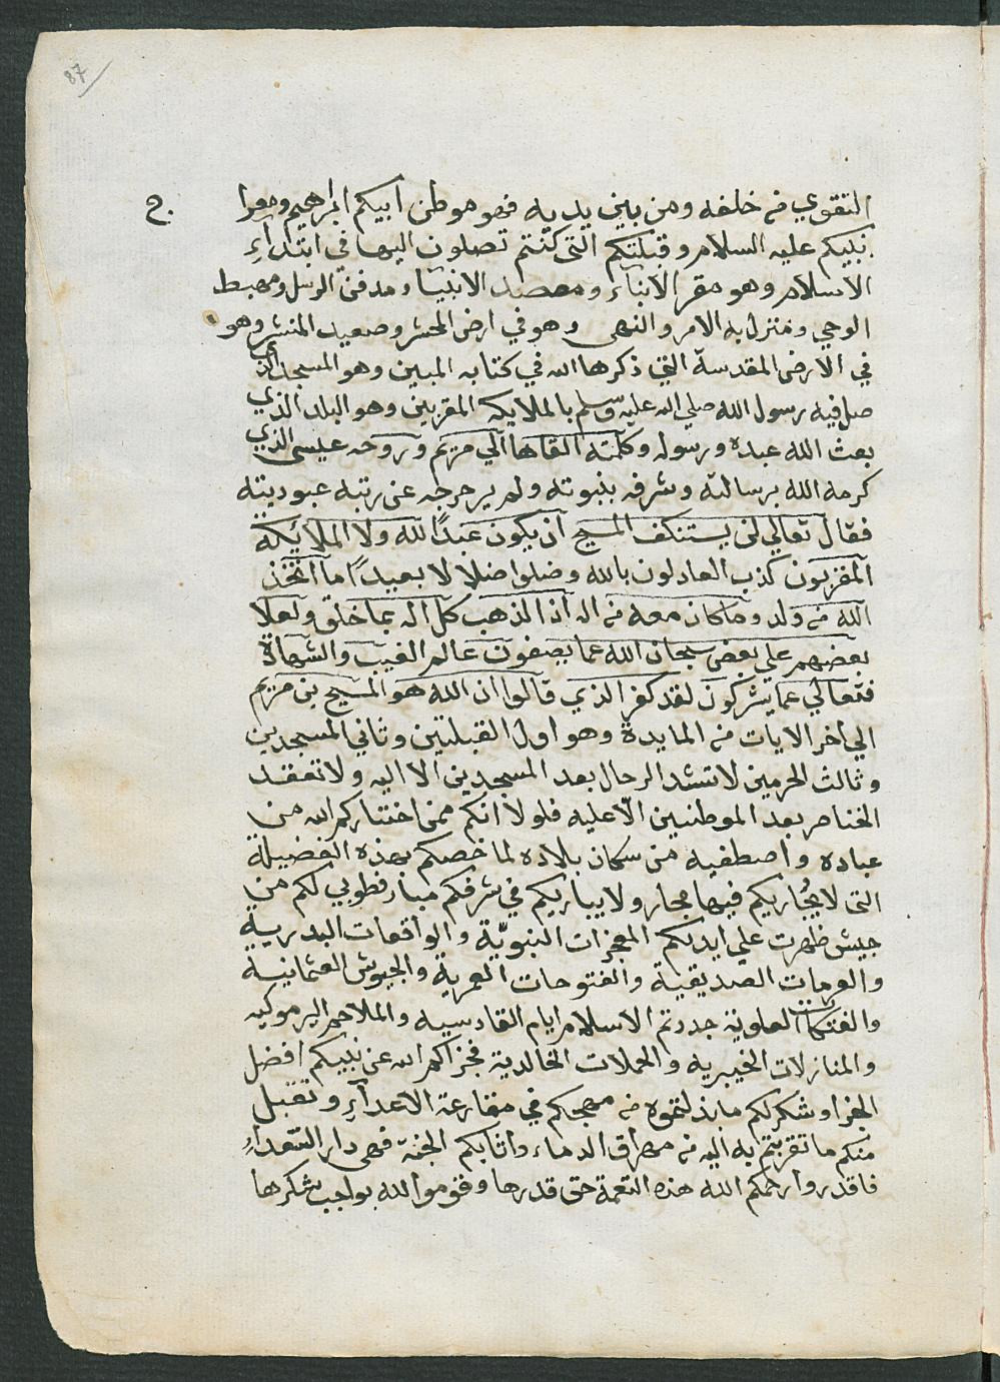 87
التقوي من خلفه ومن بين يديه فهو موطن ابيكم ابراهيم ومعرا ج.
نبيكم عليه السلام وقبلتكم التى كنتم تصلون اليها فى ابتداءِ
الاسلام وهو مقر الانبياء ومقصد الانبيآ ومدفن الرسل ومهبط
الوحي ومنزل به الامر والنهى وهو في ارض المحشر وصعيد المنشر وهو
في الارض المقدسة التي ذكرها الله في كتابه المبين وهو المسجد الذي
صل فيه رسول الله صلي الله عليه وسلم بالملايكه المقربين وهو البلد الذي
بعث الله عبده ورسوله وكلمته القاها الي مريم وروحه عيسى الذي
كرمه الله برسالته وشرفه بنبوته ولم يزحزحه عن رتبه عبوديته
فقال تعالي لن يستنكف المسيح ان يكون عبدًا لله ولا الملائكة
المقربون كذب العادلون بالله وضلوا ضلالا بعيدًا ما اتخذ
الله من ولد وما كان معه من اله اذا لذهب كل اله بما خلق ولعلا
بعضهم علي بعض سبحان الله عما يصفون عالم الغيب والشهادة
فتعالي عما يشركون لقد كفر الذي قالوا ان الله هو المسيح بن مريم
الي اخر الايات من المايدة وهو اول القبلتين وثاني المسجدين
وثالث الحرمين لا تشد الرحال بعد المسجدين الا اليه ولا تعقد
الخناصر بعد الموطنين الّا عليه فلولا انكم ممن اختاركم الله من
عباده واصطفيه من سكان بلاده لما خصكم بهذه الفضيلة
التى لا يُجاريكم فيها مجار ولا يباريكم في شرفكم مبار فطوبي لكم من
جيش ظهرت علي ايديكم المعجزات النبويّة والواقعات البدرية
والعزمات الصديقية والفتوحات العمرية والجيوش العثمانية
والفتكات العلوية جددتم الاسلام ايام القادسيه والملاحم اليرموكيه
والمنازلات الخيبريه والحملات الخالدية فجزاكم الله عن نبيكم افضل
الجزا وشكر لكم ما بذلتموه من مهجكم في مقارعة الاعدآءِ وتقبل
منكم ما تقربتم به اليه من مهراق الدماء واثابكم الجنّة فهى دار السّعداءِ
فاقدروا رحمكم الله هذه النعمة حق قدرها وقوموا لله بواجب شكرها